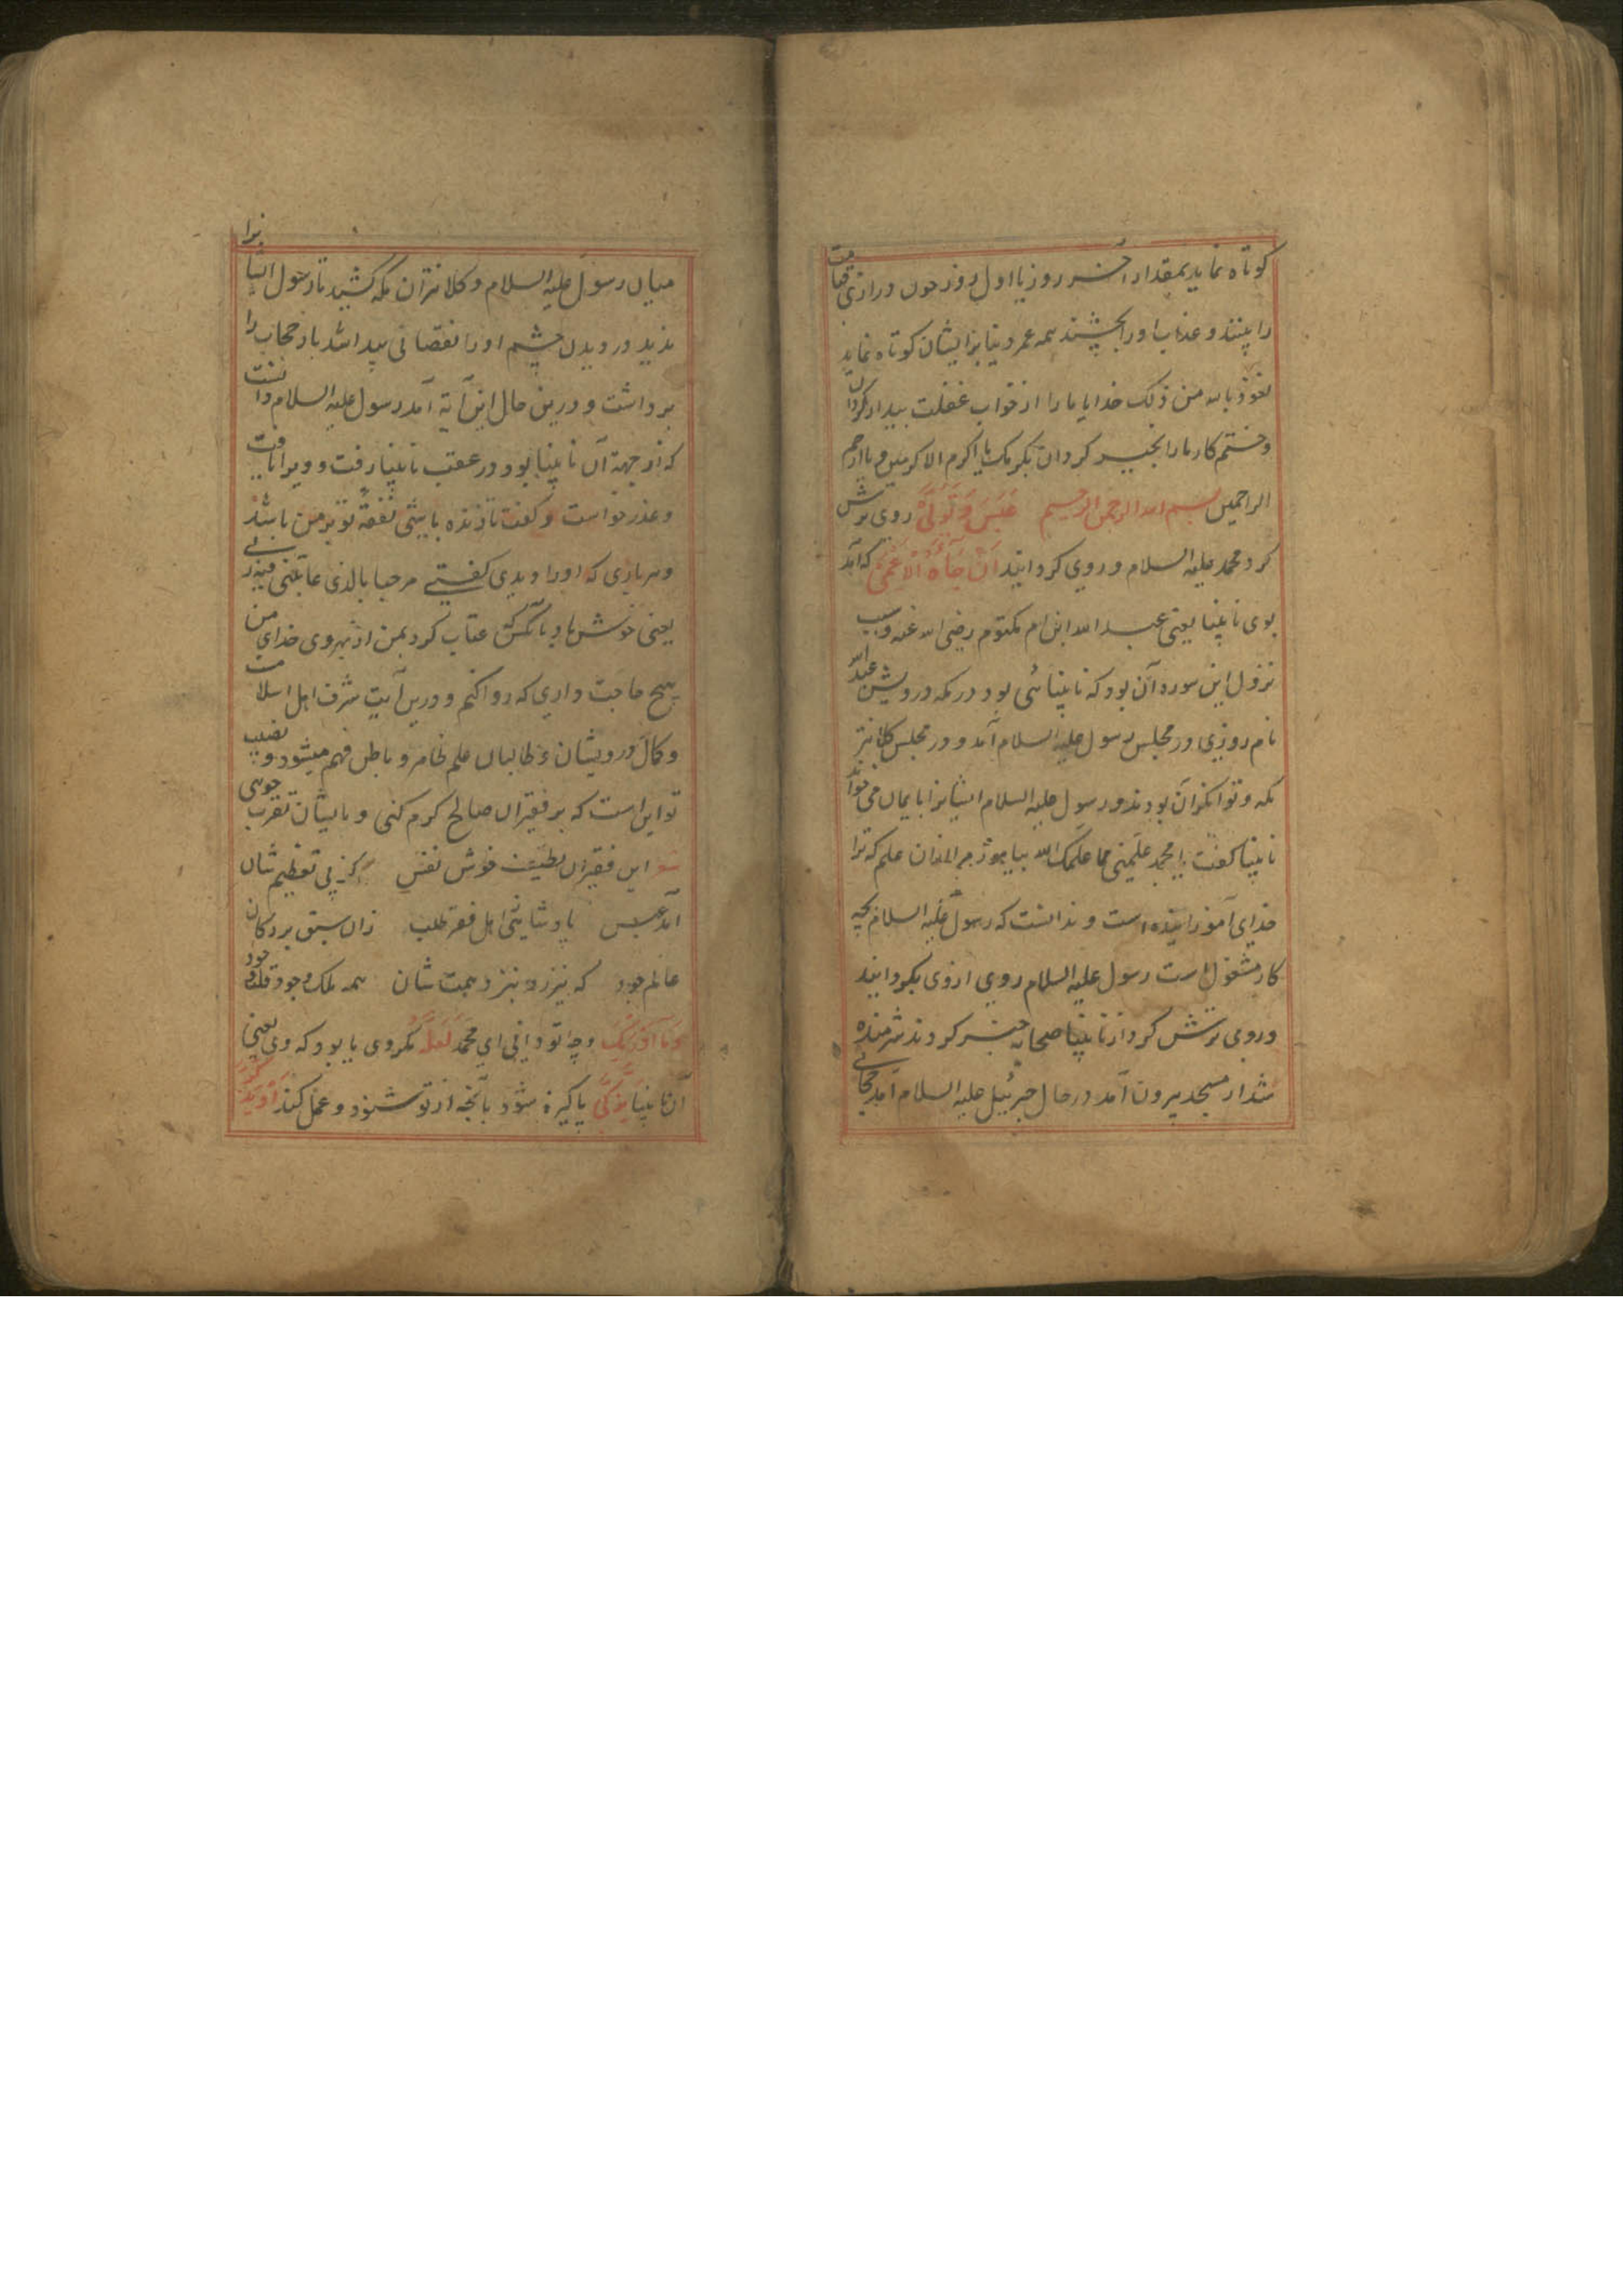 کوتاه نماید بمقدار آخر روز یا اول روز چون درازی قیامت
را بینند و عذاب او را بچشند همه عمر دنیا بر ایشان کوتاه نماید
نعوذ بالله من ذلک خدایا ما را از خواب غفلت بیدار گردان
و ختم کار ما را بخیر گردان بکرمک یا اکرم الاکرمین و یا ارحم
الراحمین بسم الله الرحمن الرحیم عَبَسَ وَتَوَلَّىٰ روی ترش
کرد محمد علیه السلام و روی گردانید اَنْ جَآءَهُ الْاَعْمٰى که آمد
بوی نابینا یعنی عبد الله ابن ام مکتوم رضی الله عنه و سبب
نزول این سوره آن بود که نابینائی بود در مکه درویش عبدالله
نام روزی در مجلس رسول علیه السلام آمد و در مجلس کلانتر
مکه و توانکران بودند و رسول علیه السلام ایشانرا بایمان می خواند
نابینا گفت یا محمد علمنی مما علمک الله بیاموز مرا ازان علم که ترا
خدای آموزانیده است و ندانست که رسول علیه السلام بچه
کار مشغول است رسول علیه السلام روی ازوی بگردانید
و روی ترش کرد از نابینا صحابه خبر کردند شرمنده
شد از مسجد بیرون آمد در حال جبرئیل علیه السلام آمد حجابی
میان رسول علیه السلام و کلانتران مکه کشید تا رسول ایشانرا
ندید و در دیدن چشم او را نقصانی پیدا شد باز حجاب را
برداشت و درین حال این آیه آمد رسول علیه السلام دانست
که از جهة آن نابینا بود در عقب نابینا رفت و ویرا یافت
و عذر خواست و گفت تا زنده باشی نفقهٔ تو بر من باشد
و هر باری که او را دیدی گفتی مرحبا بالذی عاتبنی فیه ربی
یعنی خوش باد بآنکس که عتاب کرد بمن از بهر وی خدای من
هیچ حاجت داری که روا کنم و درین آیت شرف اهل اسلامت
و کمال درویشان و طالبان علم ظاهر و باطن فهم میشود و نصیب
تو این است که بر فقیران صالح کرم کنی و بایشان تقرب جوی
این فقیران لطیف خوش نفس کز پی تعظیم شان
آمد عبس پادشاهی اهل فقر طلب زان سبق برد کان
عالم جود که نیرزد بنزد همت شان همه ملک وجود
وَمَا يُدْرِيكَ و چه تو دانی ای محمد لَعَلَّهُ مگر وی یا بود که وی یعنی
آن نابینا يَزَّكّٰى پاکیزه شود بآنچه از تو شنود و عمل کند اَوْ يَذَّكَّرُ